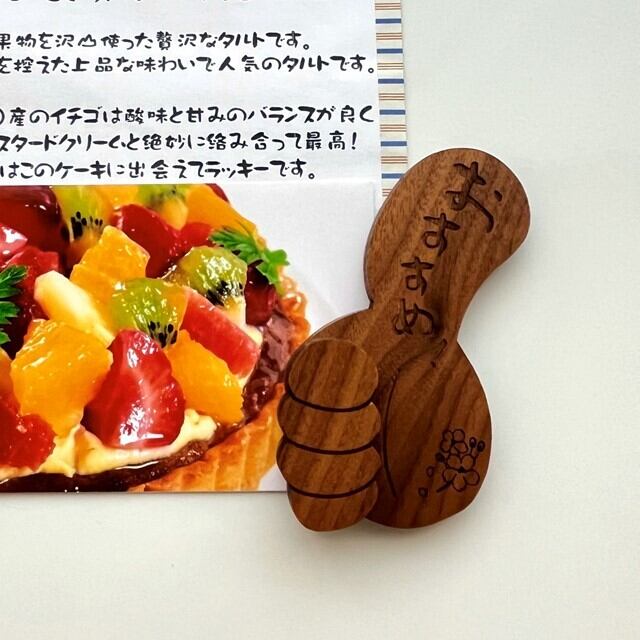 果物を沢山使った贅沢なタルトです。
を控えた上品な味わいで人気のタルトです。
産のイチゴは酸味と甘みのバランスが良く
スタードクリームと絶妙に絡み合って最高！
はこのケーキに出会えてラッキーです。
おすすめ！